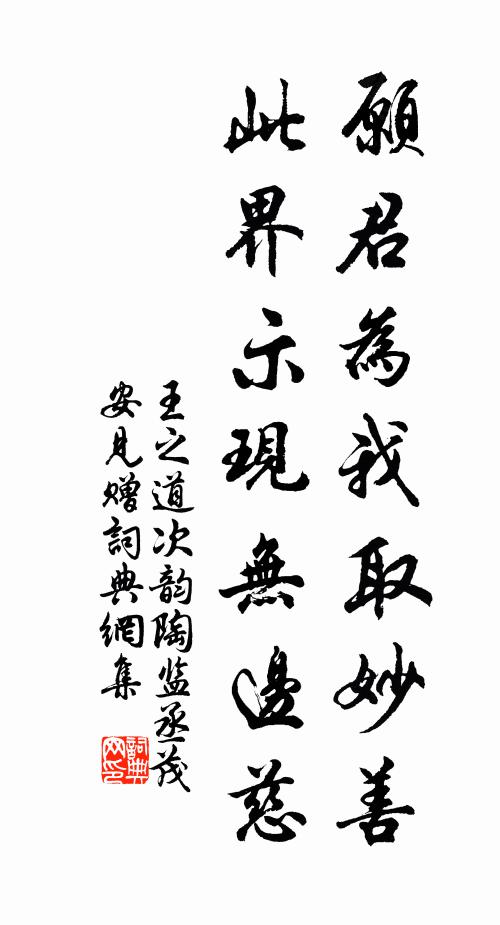 願君為我取妙善
此界示現無邊慈
王之道次韵陶监丞茂
安見赠詞典網集
詞典網印